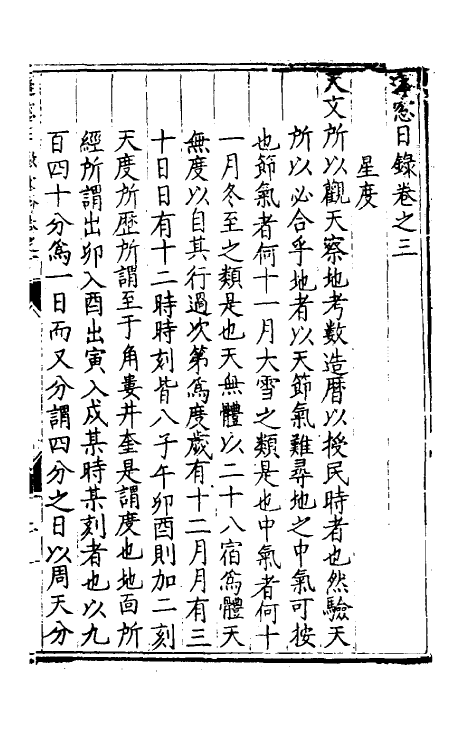 海窓日錄卷之三
星度
天文所以觀天察地考數造曆以授民時者也然驗天
所以必合乎地者以天節氣難尋地之中氣可按
也節氣者何十一月大雪之類是也中氣者何十
一月冬至之類是也天無體以二十八宿爲體天
無度以自其行過次第爲度歲有十二月月有三
十日日有十二時時刻皆八子午卯酉則加二刻
天度所歷所謂至于角婁井奎是謂度也地面所
經所謂出卯入酉出寅入戍某時某刻者也以九
百四十分爲一日而又分謂四分之日以周天分